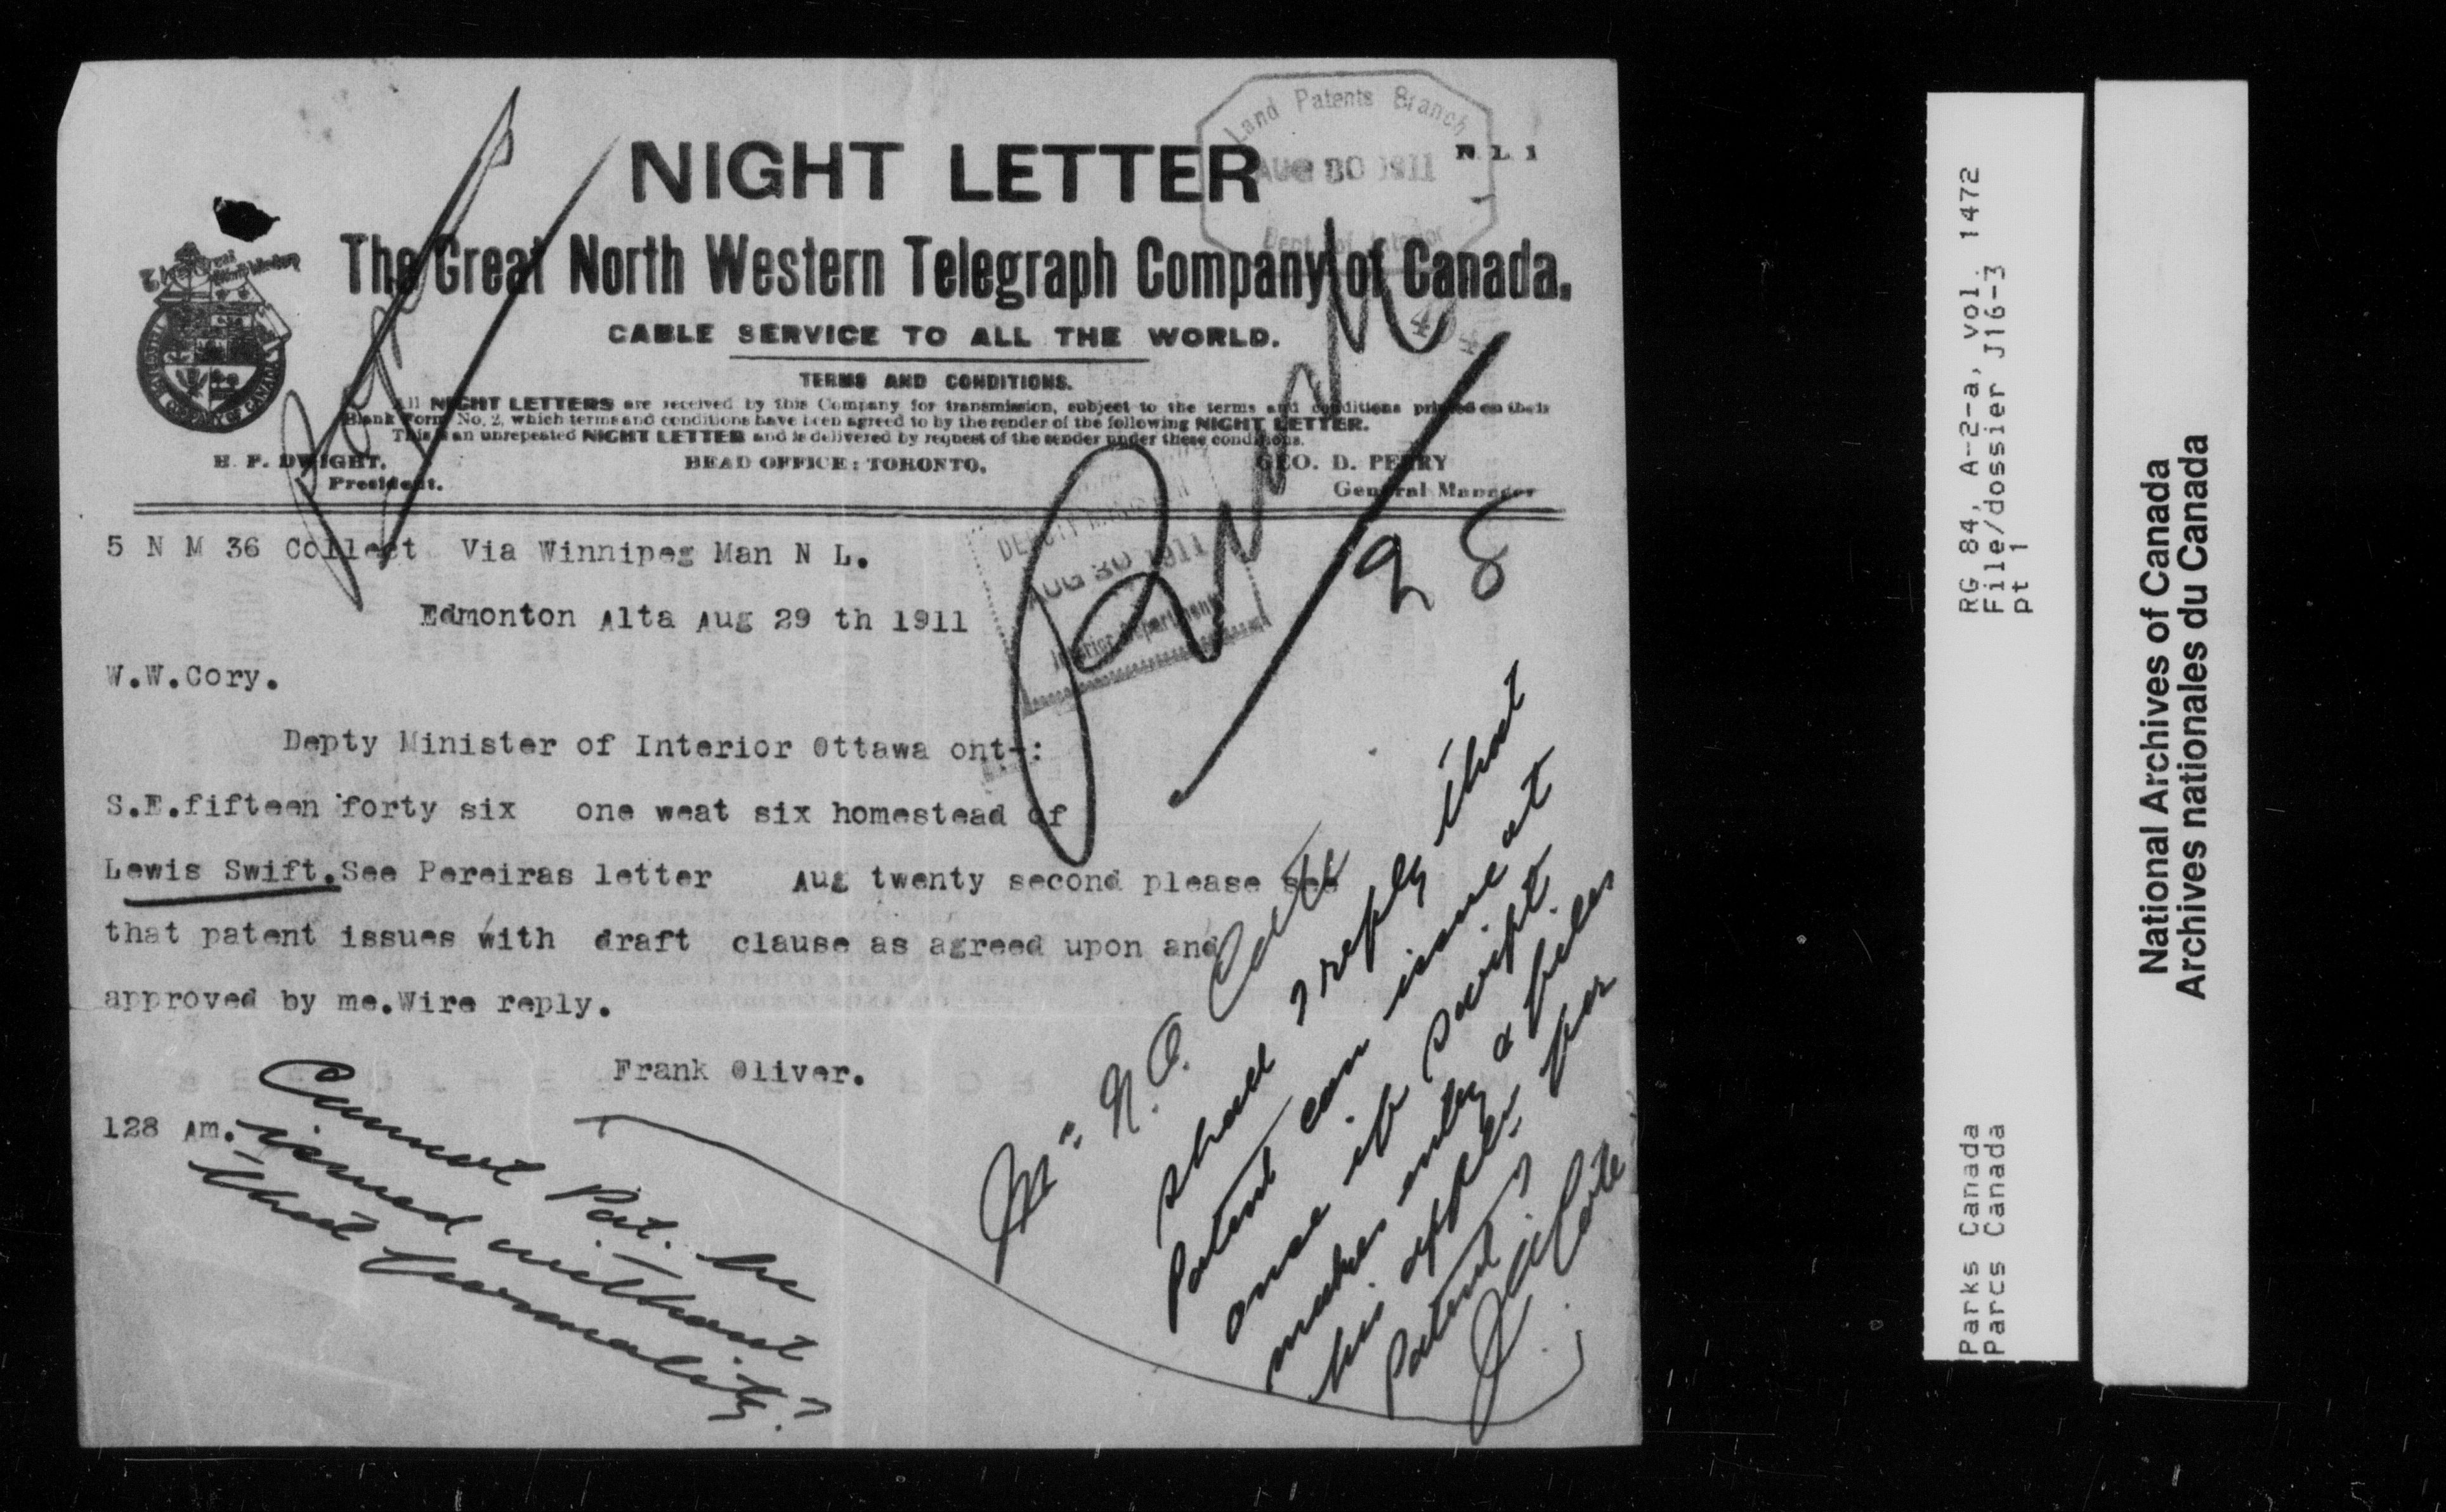 Land Patents Branch
AUG 30 1911
Dept of Interior
N L 1
NIGHT LETTER
The Great North Western Telegraph Company of Canada.
CABLE SERVICE TO ALL THE WORLD.
TERMS AND CONDITIONS.
All NIGHT LETTERS are received by this Company for transmission, subject to the terms and conditions printed on their
Blank Form No. 2, which terms and conditions have been agreed to by the sender of the following NIGHT LETTER.
This is an unrepeated NIGHT LETTER and is delivered by request of the sender under these conditions.
H. P. DWIGHT,
President.
HEAD OFFICE: TORONTO.
GEO. D. PERRY
General Manager
5 N M 36 Collect Via Winnipeg Man N L.
Edmonton Alta Aug 29 th 1911
AUG 30 1911
Interior Department
28
W.W.Cory.
Depty Minister of Interior Ottawa ont-:
S.E.fifteen forty six one weat six homestead of
Lewis Swift.See Pereiras letter Aug twenty second please see
that patent issues with draft clause as agreed upon and
approved by me.Wire reply.
Frank Oliver.
128 Am.
Cannot Pat. be
issued without
that formality?
Mr N.O. Coté
Shall I reply that
Patent can issue at
once if Swift
makes entry & files
his applcn for
Patent?
RG 84, A-2-a, vol. 1472
File/dossier J16-3
pt 1
Parks Canada
Parcs Canada
National Archives of Canada
Archives nationales du Canada